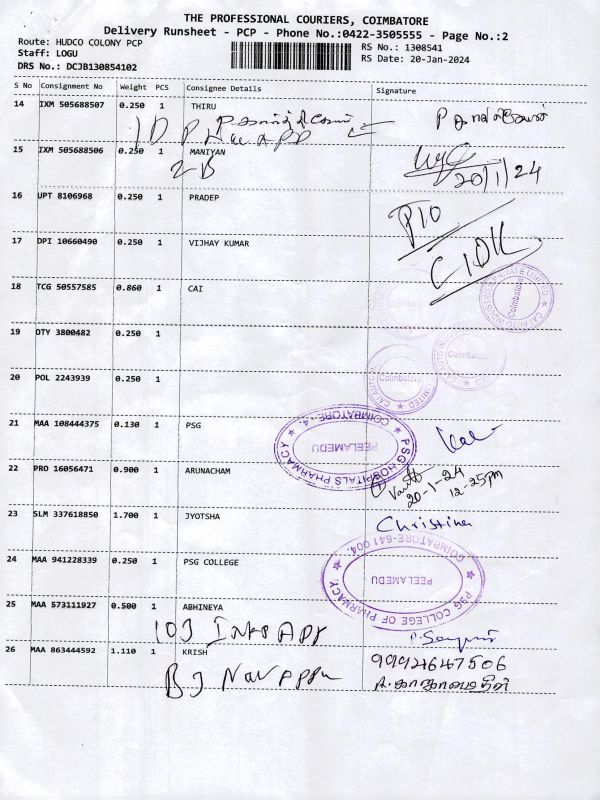 THE PROFESSIONAL COURIERS, COIMBATORE
Delivery Runsheet - PCP - Phone No.:0422-3505555 - Page No.:2
Route: HUDCO COLONY PCP
RS No.: 1308541
Staff: LOGU
RS Date: 20-Jan-2024
DRS No.: DCJB130854102
S No Consignment No Weight PCS Consignee Details Signature
14 IXM 505688507 0.250 1 THIRU
15 IXM 505688506 0.250 1 MANIYAN
2B
20/1/24
16 UPT 8106968 0.250 1 PRADEP
17 DPI 10660490 0.250 1 VIJHAY KUMAR
18 TCG 50557585 0.860 1 CAI
Coimbatore
19 DTY 3800482 0.250 1
Coimbatore
20 POL 2243939 0.250 1
Coimbatore
21 MAA 108444375 0.130 1 PSG
PSG HOSPITALS PHARMACY
PEELAMEDU
COIMBATORE - 4.
22 PRO 16056471 0.900 1 ARUNACHAM
20-1-24
12-25pm
23 SLM 337618850 1.700 1 JYOTSHA
Christina
24 MAA 941228339 0.250 1 PSG COLLEGE
PSG COLLEGE OF PHARMACY
PEELAMEDU
COIMBATORE-641 004.
25 MAA 573111927 0.500 1 ABHINEYA
103
26 MAA 863444592 1.110 1 KRISH
9994647506